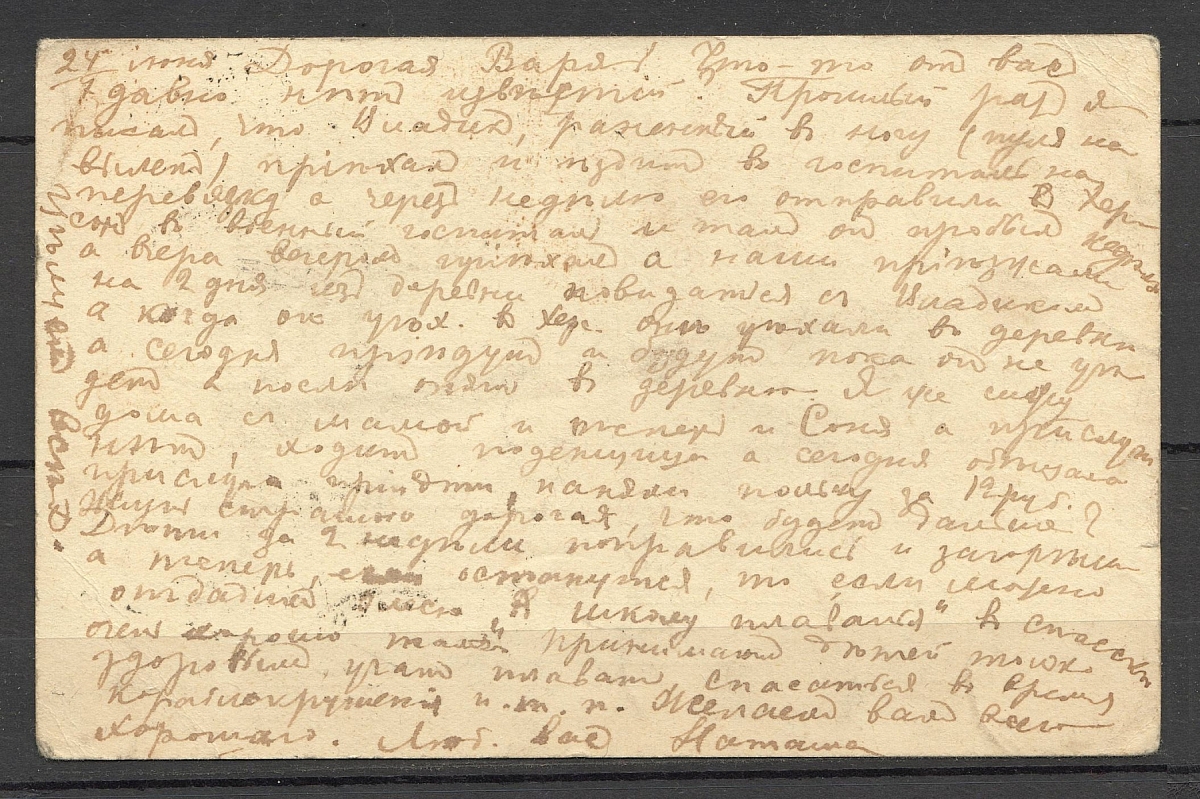 24/7 июня Дорогая Варя! Что-то от вас
давно нѣт извѣстий. Прошлый раз я
писал, что Владик, раненный в ногу (пуля на
вылет) приѣхал и ѣздит в госпиталь на
перевязку а через недѣлю его отправили в Хер-
сон в военный госпитал и там он пробыл
а вчера вечером приѣхал а наши приѣзжали
на 2 дня из деревни повидатся с Владиком
а когда он уѣх. в Хер. они уѣхали в деревню
а сегодня приѣдут и будут пока он не уѣ-
дет а посли опять в деревню. Я же сижу
дома с мамой и теперь и Соня а прислуги
нѣт, ходит поденщица а сегодня обѣщала
прислуга прийдти, наняли польку за 12 руб.
Жизнь страшно дорогая, что будет дальше?
Дѣти за 2 недѣли поправились и загорѣли
а теперь, останутся, то если можно
отдадим в "школу плаванья" в
очень хорошо там принимают дѣтей только
здоровых, учат плават, спасатся в время
кораблокрушений и.т.п. Желаем вам всего
хорошаго. Люб. вас Наташа
Цѣлуем всѣх.